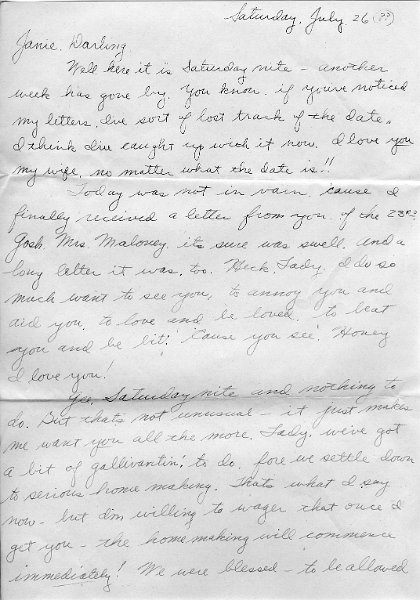 Saturday, July 26 (??)
Janie, Darling,
Well here it is Saturday nite - another
week has gone by. You know, if you've noticed
my letters, I've sort of lost track of the date.
I think I've caught up with it now. I love you
my wife, no matter what the date is!!
Today was not in vain, cause I
finally received a letter from you, of the 23rd.
Gosh, Mrs. Maloney, it sure was swell, and a
long letter it was, too. Heck, Lady, I do so
much want to see you, to annoy you and
aid you, to love and be loved, to beat
you and be bit; 'Cause you see, Honey
I love you!
Yes, Saturday nite and nothing to
do. But thats not unusual - it just makes
me want you all the more. Lady, we've got
a bit of gallivantin' to do, fore we settle down
to serious home making. Thats what I say
now - but I'm willing to wager that once I
get you - the homemaking will commence
immediately! We were blessed - to be allowed